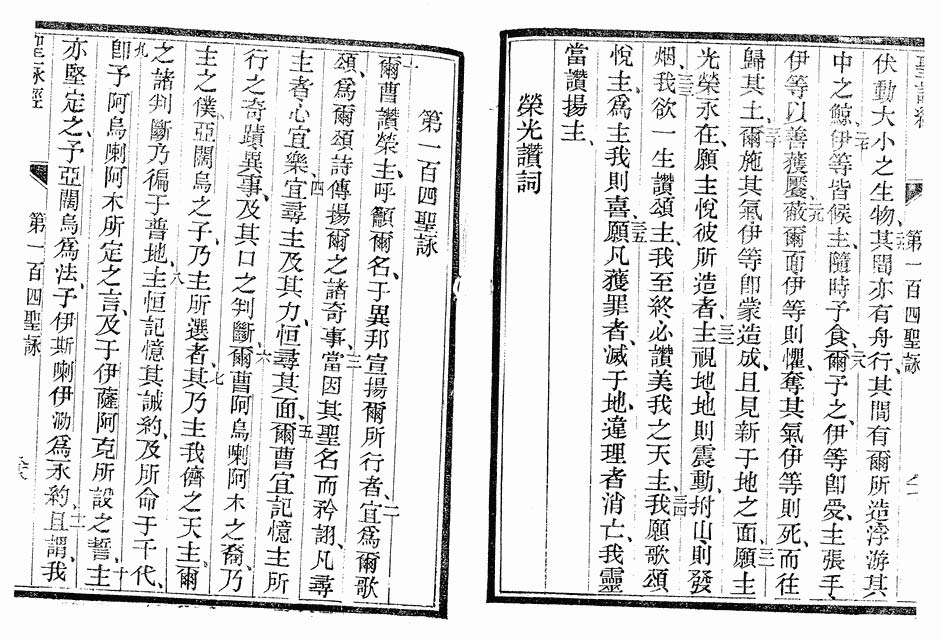 聖詠經
第一百四聖詠
伏動大小之生物、其間亦有舟行、其間有爾所造浮游其
中之鯨、伊等皆候主、隨時予食、爾予之、伊等卽受、主張手、
伊等以善獲饜、蔽爾面、伊等則懼、奪其氣、伊等則死、而往
歸其土、爾施其氣、伊等卽蒙造成、且見新于地之面、願主
光榮永在、願主悅彼所造者、主視地、地則震動、拊山、則發
烟、我欲一生讚頌主、我至終必讚美我之天主、我願歌頌
悅主、爲主我則喜、願凡獲罪者、滅于地、違理者消亡、我靈
當讚揚主、
榮光讚詞
第一百四聖詠
一爾曹讚榮主、呼籲爾名、于異邦宣揚爾所行者、二宜爲爾歌
頌、爲爾頌詩、傳揚爾之諸奇事、三當因其聖名而矜詡、凡尋
主者、心宜樂、四宜尋主及其力、恒尋其面、五爾曹宜記憶主所
行之奇蹟異事、及其口之判斷、六爾曹阿烏喇阿木之裔、乃
主之僕、亞闊烏之子、乃主所選者、七其乃主我儕之天主、爾
之諸判斷乃徧于普地、八主恒記憶其誡約、及所命于千代、
九卽予阿烏喇阿木所定之言、及于伊薩阿克所設之誓、十主
亦堅定之、予亞闊烏爲法、予伊斯喇伊泐爲永約、十一且謂、我
聖詠經
第一百四聖詠